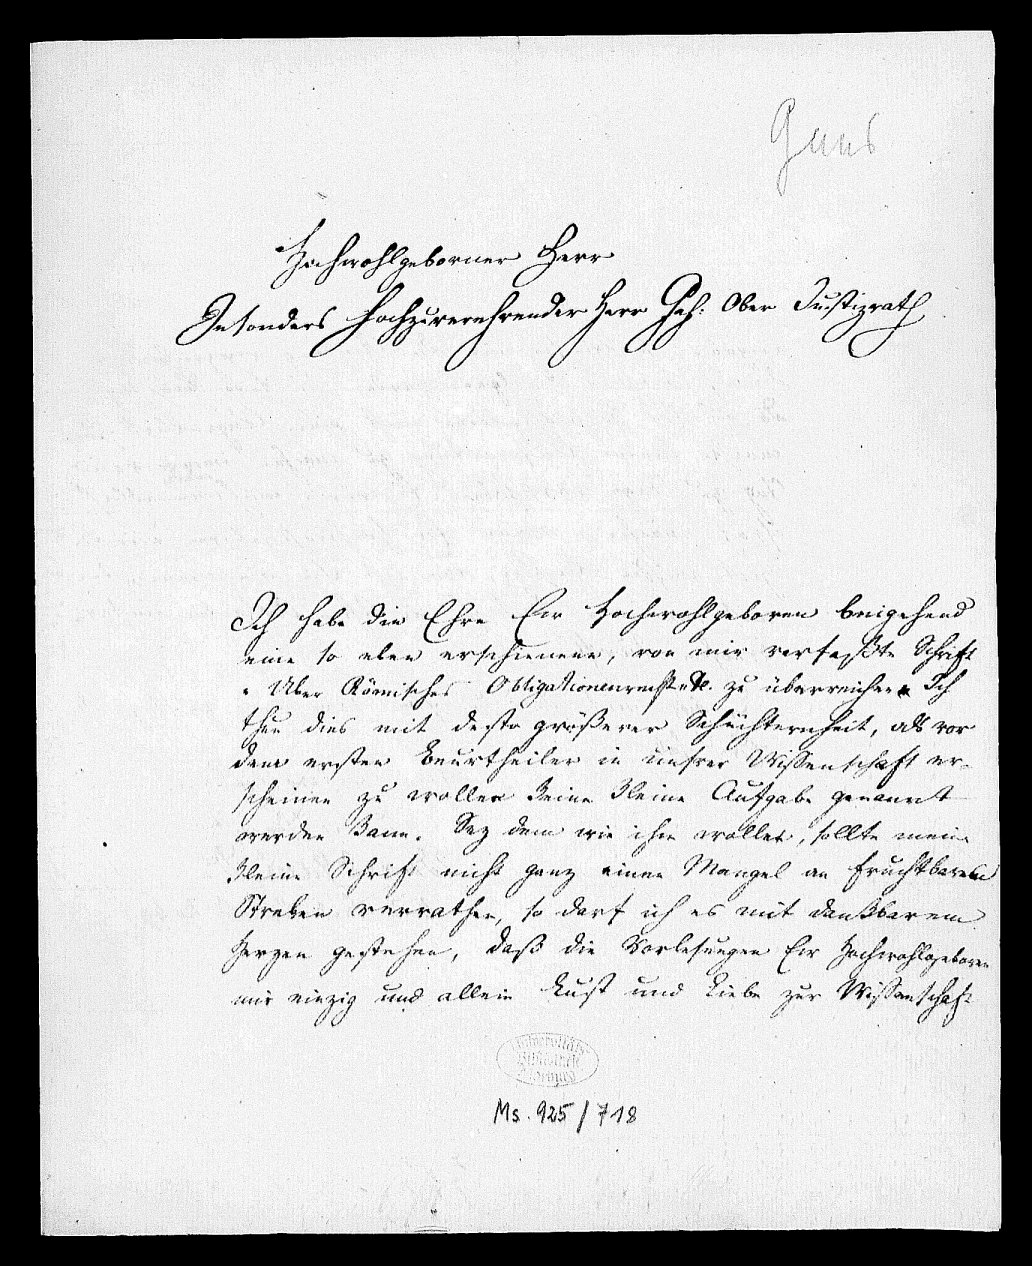 Gans
Hochwohlgeborner Herr
Insonders Hochzuverehrender Herr Geh: Ober Justizrath
Ich habe die Ehre Ew Hochwohlgeboren beigehend
eine so eben erschienene, von mir verfaßte Schrift
"Uber Römisches Obligationenrecht" zu überreichen. Ich
thue dies mit desto größerer Schüchternheit, als vor
dem ersten Beurtheiler in unsrer Wissenschaft er-
scheinen zu wollen keine kleine Aufgabe genannt
werden kann. Sey dem wie ihm wolle, sollte meine
kleine Schrift nicht ganz einen Mangel an fruchtbarem
Streben verrathen, so darf ich es mit dankbarem
Herzen gestehen, daß die Vorlesungen Ew Hochwohlgeboren
mir einzig und allein Lust und Liebe zur Wissenschaft
Universitäts
Bibliothek
Marburg
Ms. 925/718